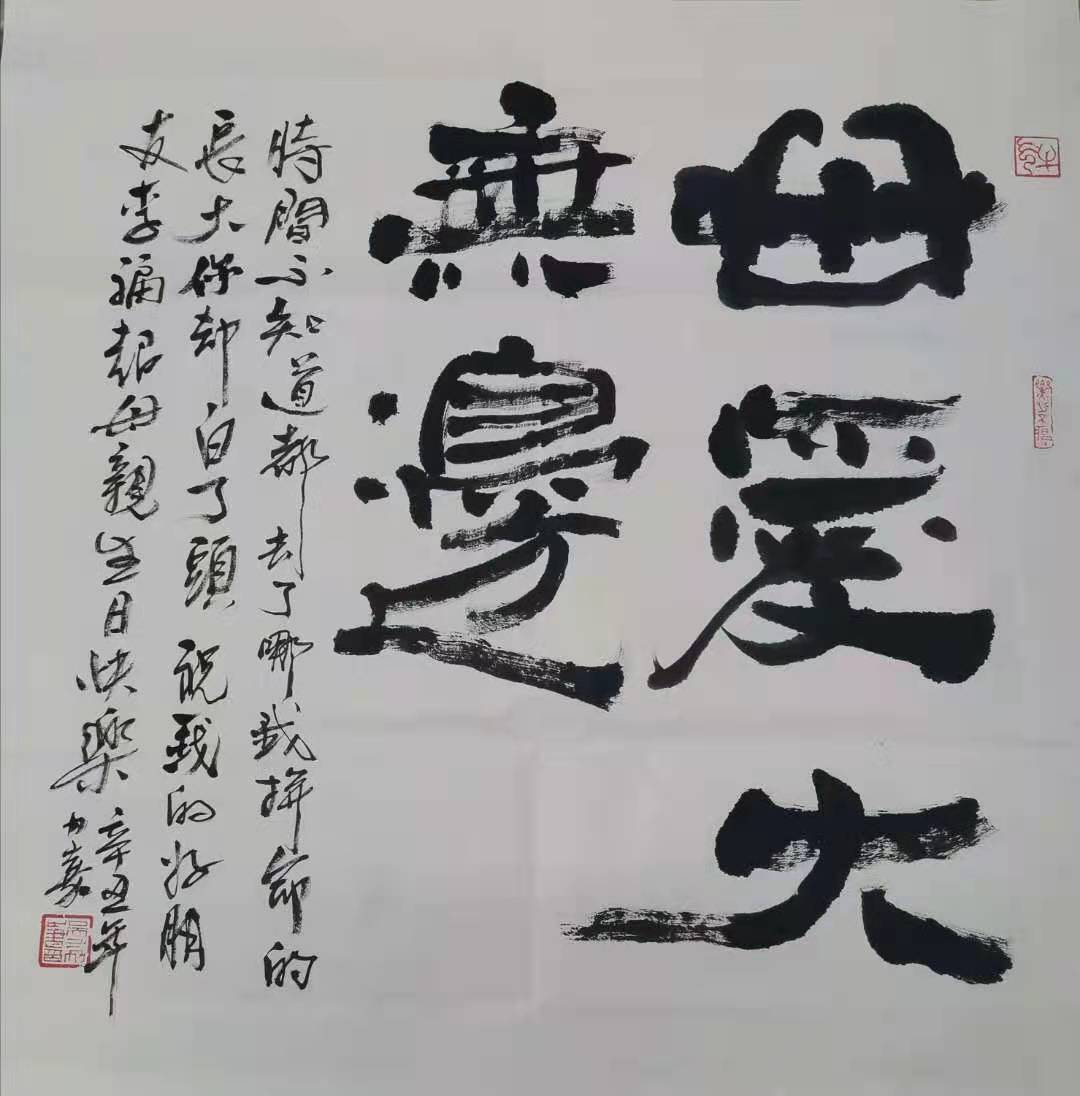 母愛大
無邊
時間不知道都去了哪我拚命的
長大你却白了頭祝我的好朋
友李福超母親生日快樂
辛丑年